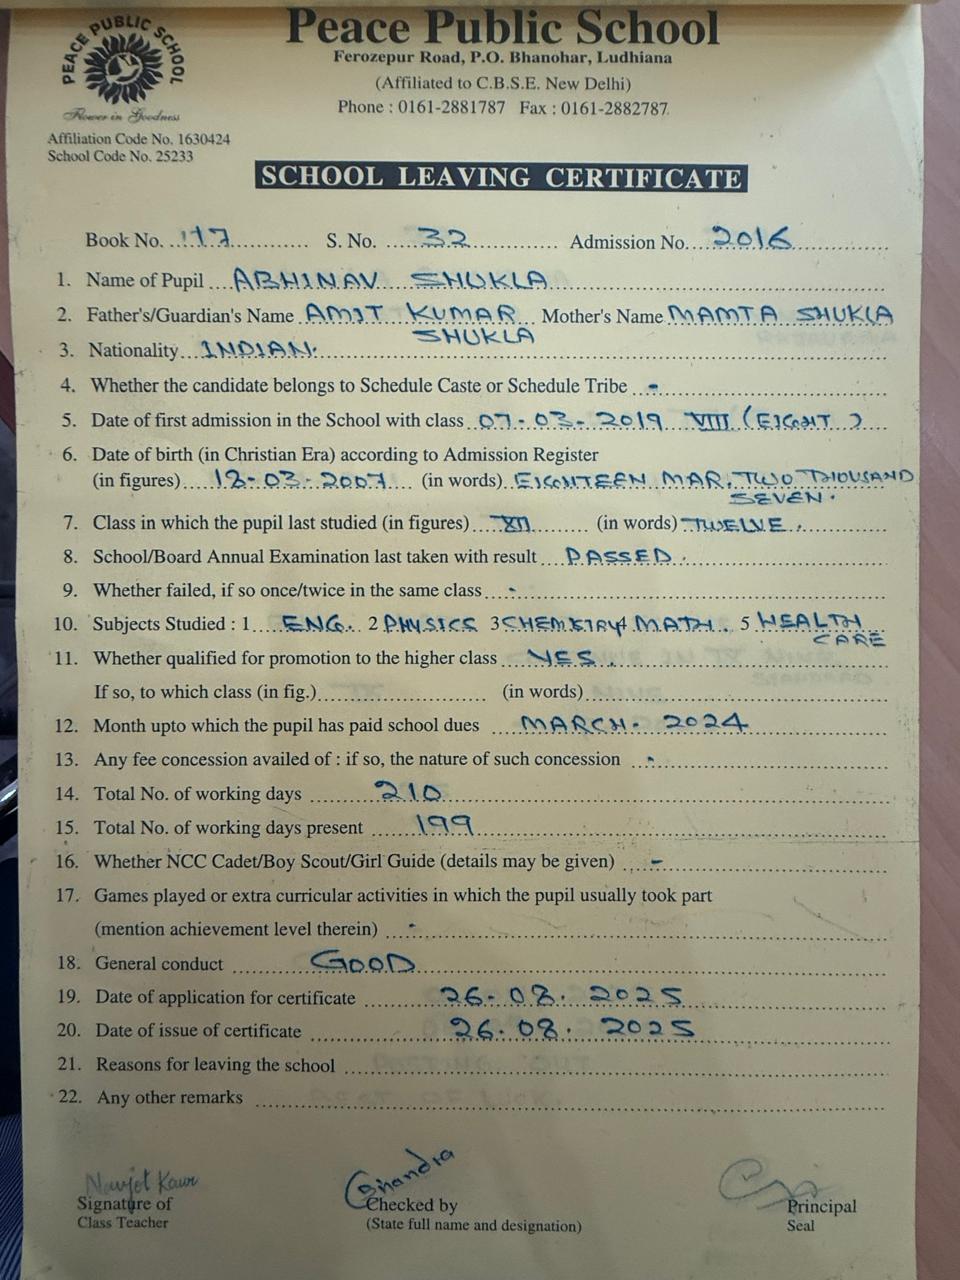 PEACE PUBLIC SCHOOL
Flower in Goodness
Peace Public School
Ferozepur Road, P.O. Bhanohar, Ludhiana
(Affiliated to C.B.S.E. New Delhi)
Phone : 0161-2881787 Fax : 0161-2882787
Affiliation Code No. 1630424
School Code No. 25233
SCHOOL LEAVING CERTIFICATE
Book No. 117 S. No. 32 Admission No. 2016
1. Name of Pupil ABHINAV SHUKLA
2. Father's/Guardian's Name AMIT KUMAR SHUKLA Mother's Name MAMTA SHUKLA
3. Nationality INDIAN.
4. Whether the candidate belongs to Schedule Caste or Schedule Tribe -
5. Date of first admission in the School with class 07-03-2019 VIII (EIGHT)
6. Date of birth (in Christian Era) according to Admission Register
(in figures) 18-03-2007 (in words) EIGHTEEN MAR. TWO THOUSAND SEVEN.
7. Class in which the pupil last studied (in figures) XII (in words) TWELVE.
8. School/Board Annual Examination last taken with result PASSED.
9. Whether failed, if so once/twice in the same class -
10. Subjects Studied : 1 ENG. 2 PHYSICS 3 CHEMISTRY 4 MATH. 5 HEALTH CARE
11. Whether qualified for promotion to the higher class YES.
If so, to which class (in fig.) (in words)
12. Month upto which the pupil has paid school dues MARCH - 2024
13. Any fee concession availed of : if so, the nature of such concession -
14. Total No. of working days 210
15. Total No. of working days present 199
16. Whether NCC Cadet/Boy Scout/Girl Guide (details may be given) -
17. Games played or extra curricular activities in which the pupil usually took part
(mention achievement level therein) -
18. General conduct GOOD
19. Date of application for certificate 26.08.2025
20. Date of issue of certificate 26.08.2025
21. Reasons for leaving the school
22. Any other remarks
Navjot Kaur
Signature of
Class Teacher
Checked by
(State full name and designation)
Principal
Seal